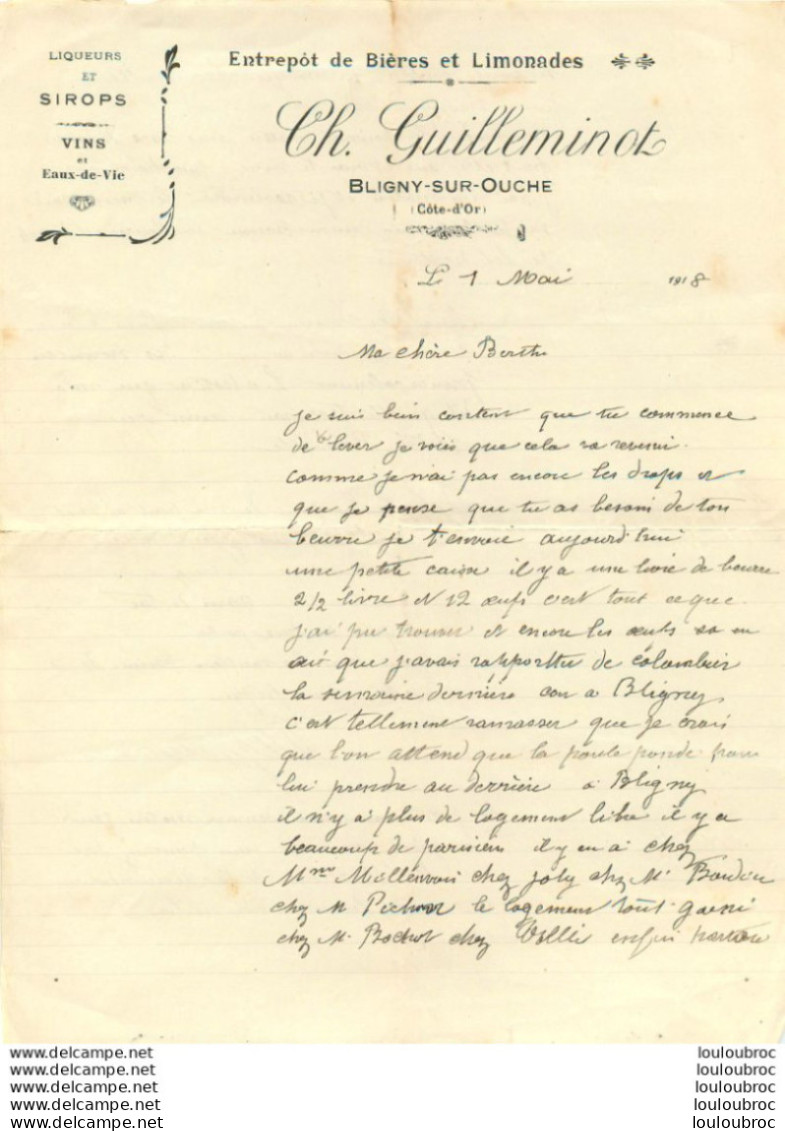 LIQUEURS
ET
SIROPS
VINS
et
Eaux-de-Vie
Entrepôt de Bières et Limonades
Ch. Guilleminot
BLIGNY-SUR-OUCHE
(Côte-d'Or)
Le 1 Mai 1918
Ma chère Berthe
je suis bien content que tu commence
de lever je vois que cela va revenir.
comme je n'ai pas encore les draps et
que je pense que tu as besoin de ton
beurre je t'envoie aujourd'hui
une petite caisse il y a une livre de beurre
2/2 livre et 12 œufs c'est tout ce que
j'ai pu trouver et encore les œufs
que j'avais rapportter de colombier
la semaine dernière car a Bligny
c'est tellement ramasser que je crois
que l'on attend que la poule ponde pour
lui prendre au derrière a Bligny
il n'y a plus de logement libre il y a
beaucoup de parisien il y en a chez
Mme chez joly chez M. Baudin
chez M le logement tout garni
chez M. chez enfin
www.delcampe.net
www.delcampe.net
www.delcampe.net
www.delcampe.net
www.delcampe.net
louloubroc
louloubroc
louloubroc
louloubroc
louloubroc